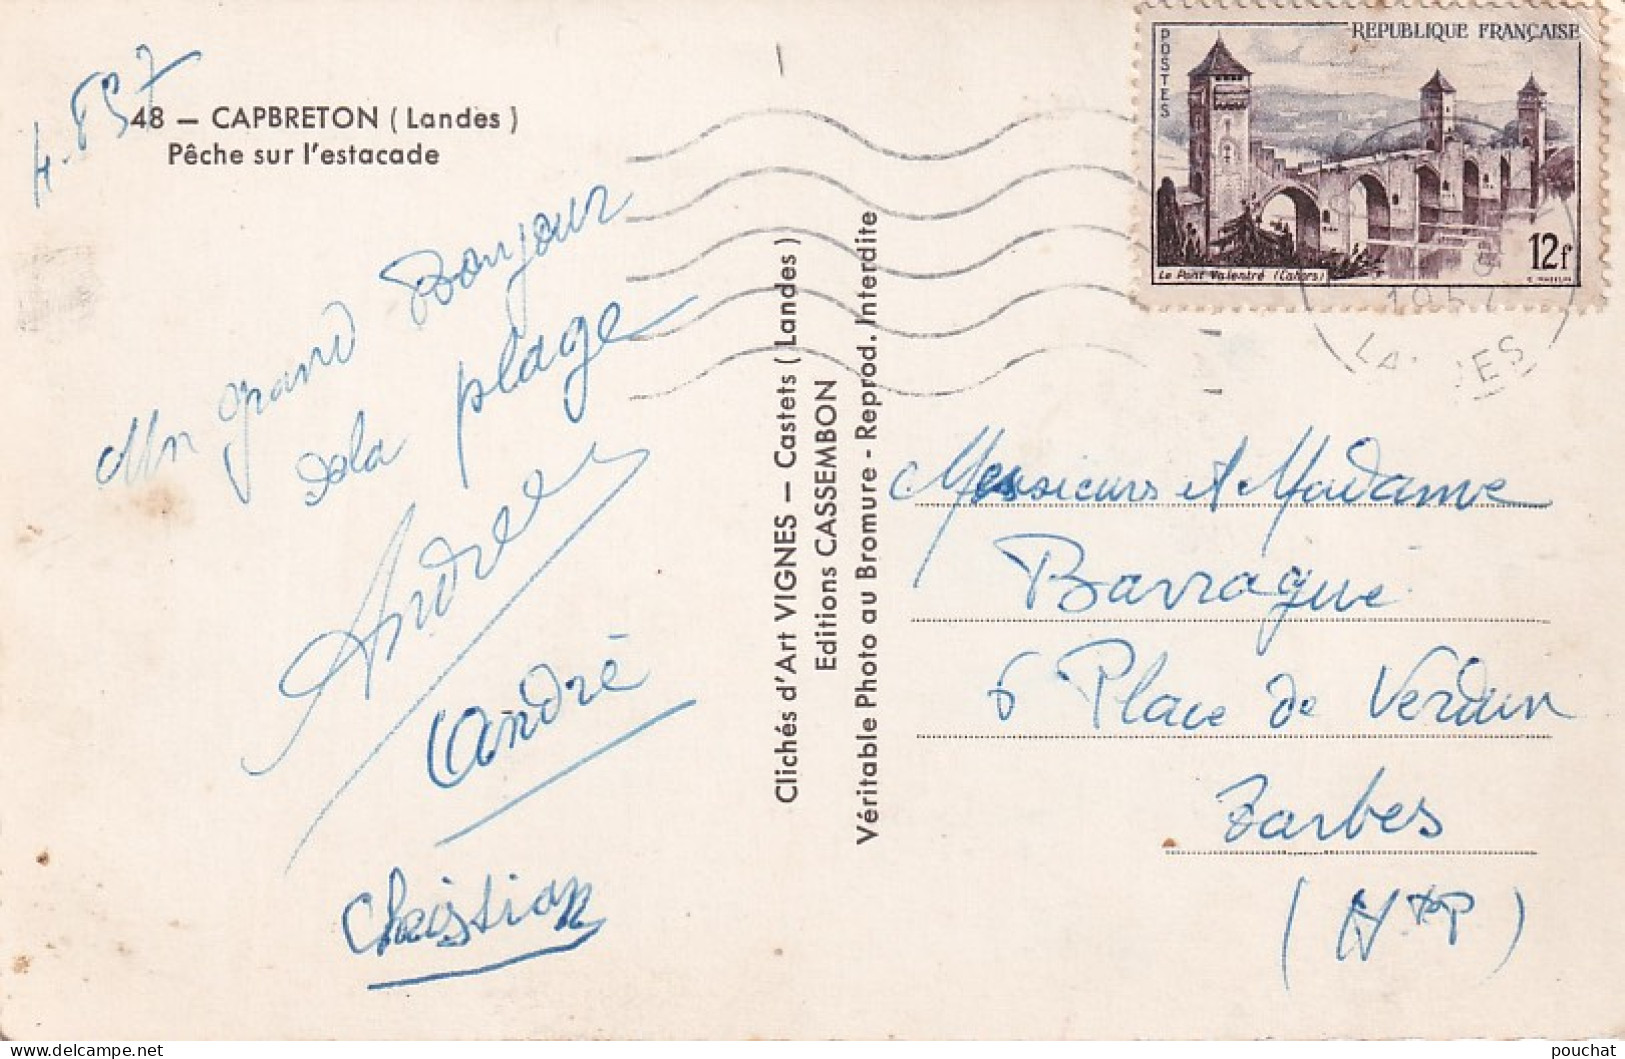 4.8.57
48 — CAPBRETON ( Landes )
Pêche sur l'estacade
Un grand Bonjour
de la plage
Andrée
André
Christian
Clichés d'Art VIGNES — Castets ( Landes )
Editions CASSEMBON
Véritable Photo au Bromure - Reprod. Interdite
POSTES
REPUBLIQUE FRANÇAISE
Le Pont Valentré (Cahors)
12f
1957
LANDES
Messieurs et Madame
Barrague
6 Place de Verdun
Tarbes
(Htes P)
pouchat